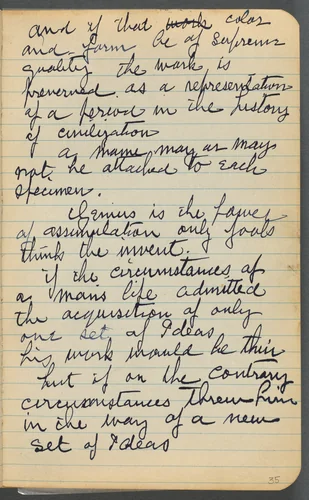 and if that work color
and form be of Supreme
quality the work is
preserved as a representation
of a period in the history
of civilization
a name may or may
not be attached to each
specimen.
Genius is the power
of assimilation only fools
think the invent.
if the circumstances of
a mans life admitted
the acquisition of only
one set of Ideas
his work would be thin
but if on the contrary
circumstances threw him
in the way of a new
set of Ideas
35